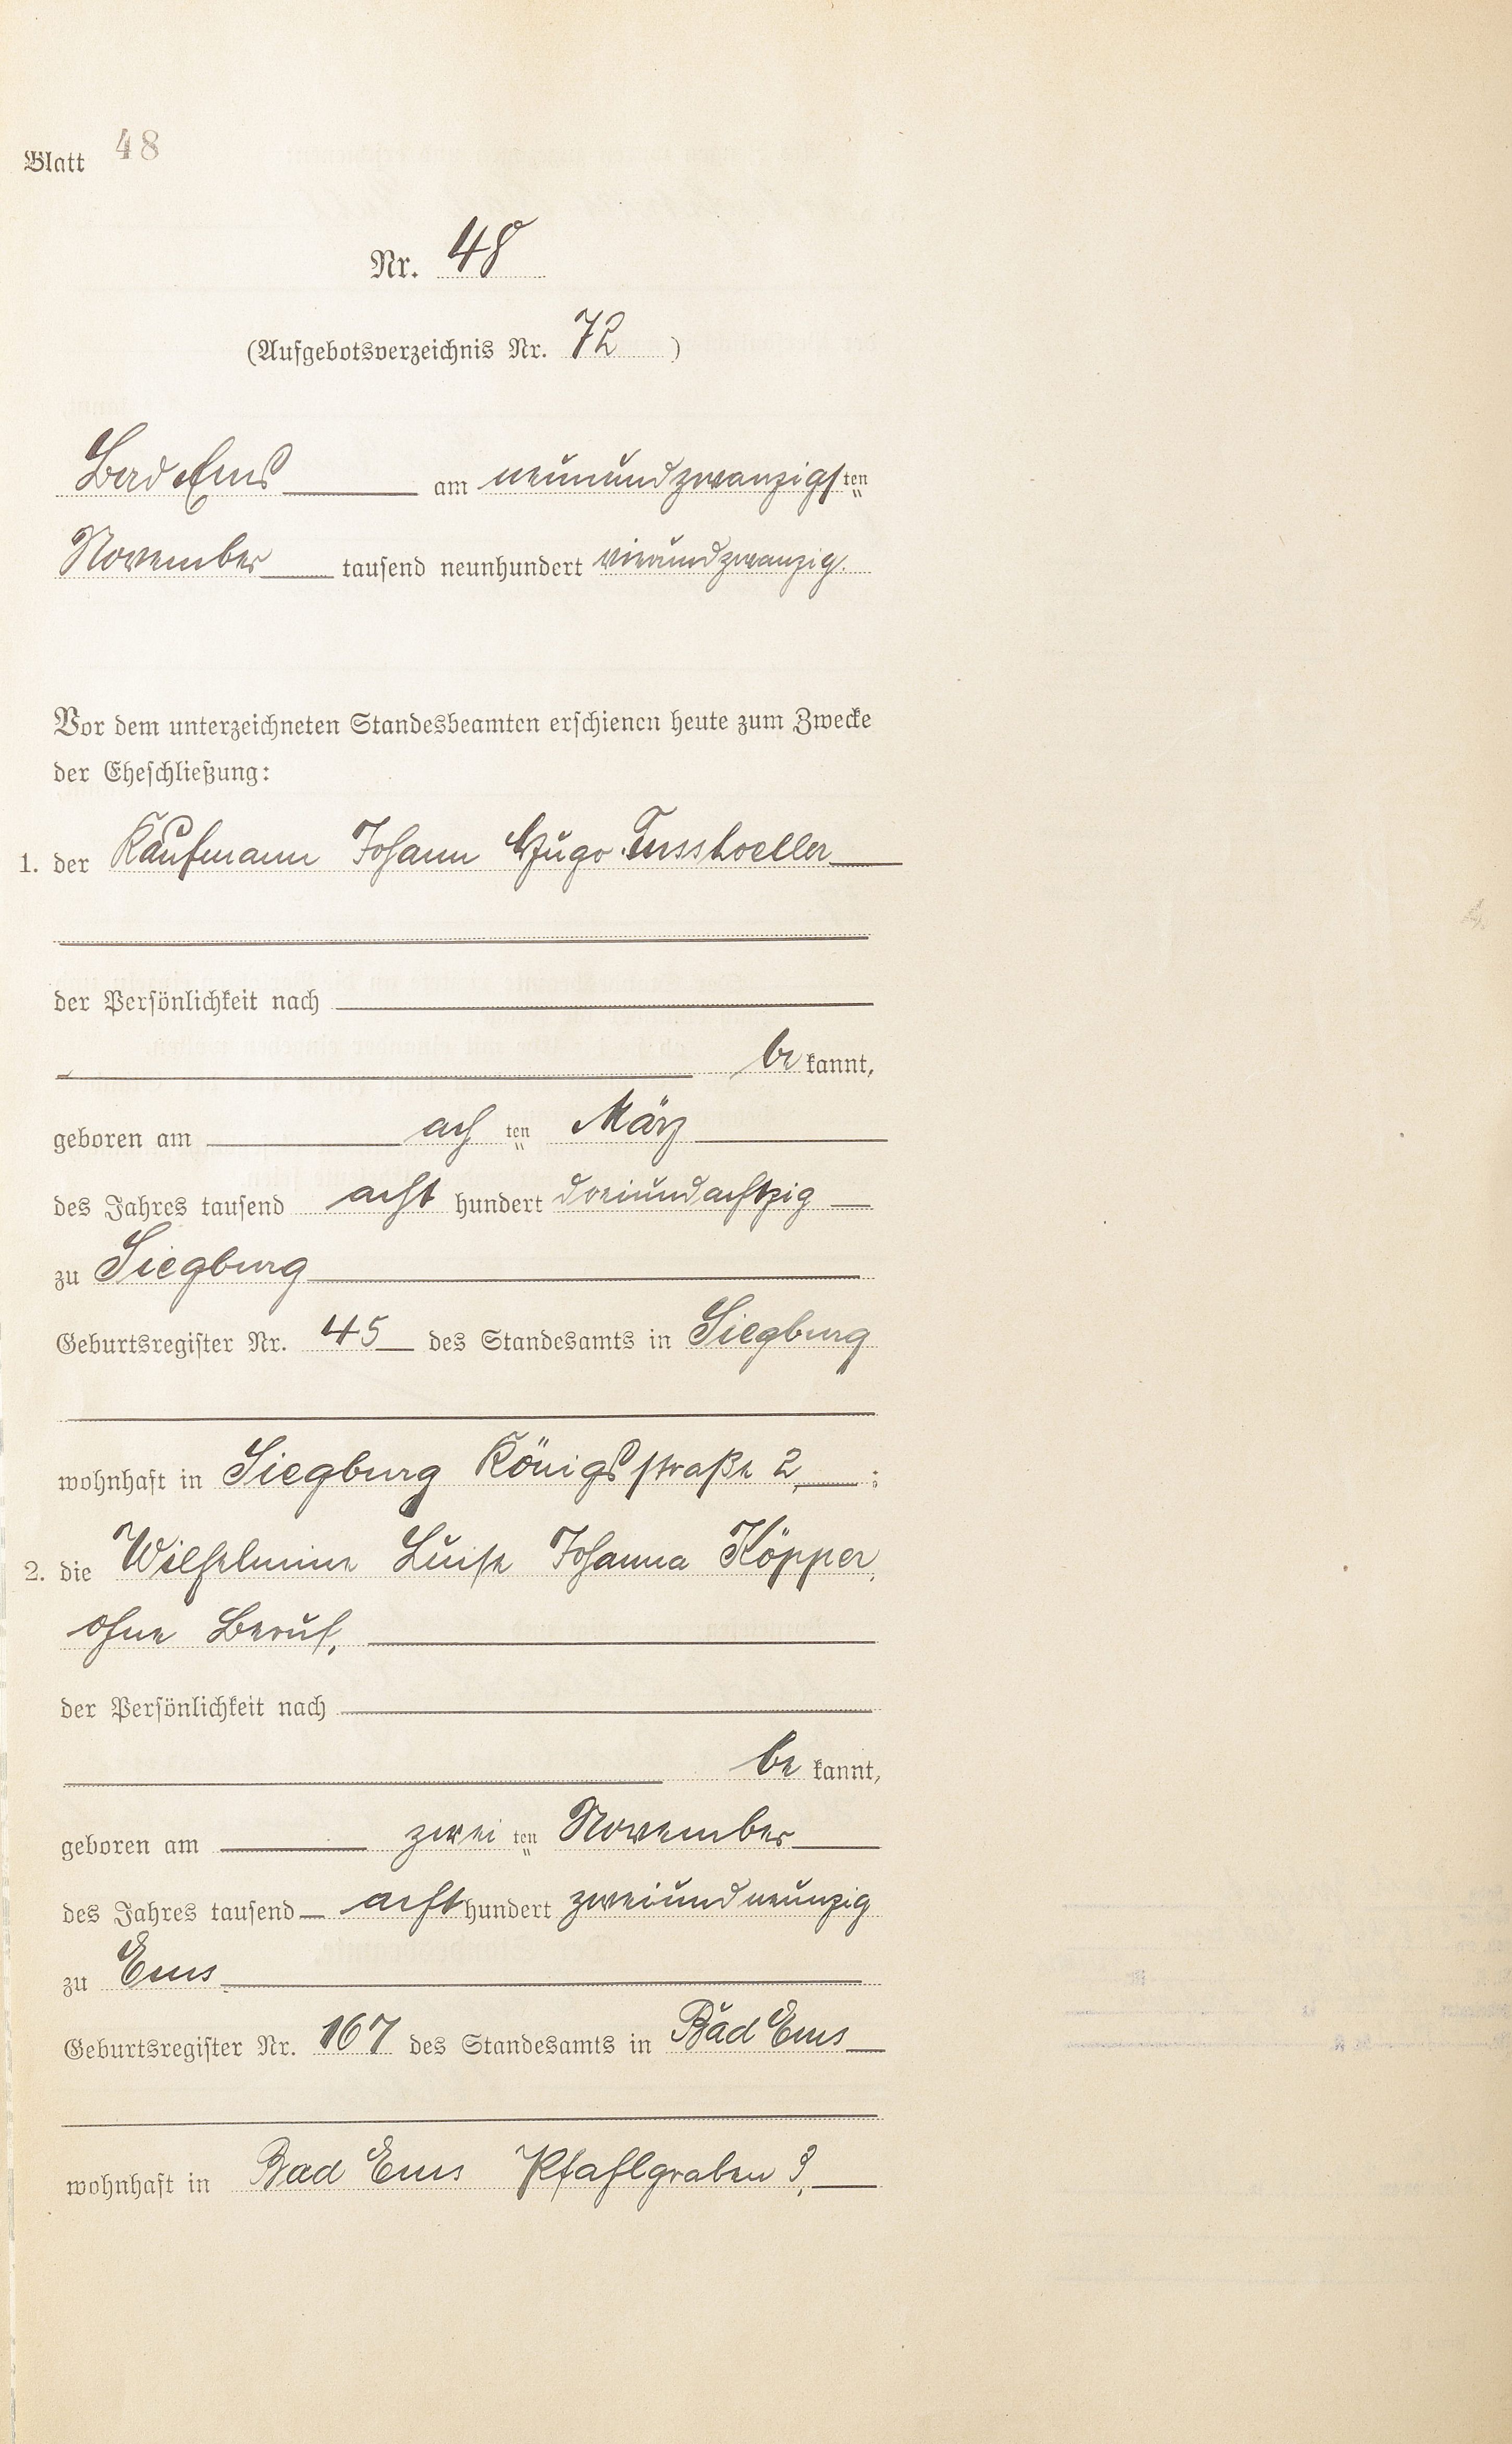 Blatt 48
Nr. 48
(Aufgebotsverzeichnis Nr. 72)
Bad Ems am neunundzwanzigsten
November tausend neunhundert vierundzwanzig.
Vor dem unterzeichneten Standesbeamten erschienen heute zum Zwecke
der Eheschließung:
1. der Kaufmann Johann Hugo Fusshoeller
der Persönlichkeit nach
be kannt,
geboren am ach ten März
des Jahres tausend acht hundert dreiundachtzig
zu Siegburg
Geburtsregister Nr. 45 des Standesamts in Siegburg
wohnhaft in Siegburg Königsstraße 2, ;
2. die Wilhelmine Luise Johanna Köpper,
ohne Beruf,
der Persönlichkeit nach
be kannt,
geboren am zwei ten November
des Jahres tausend acht hundert zweiundneunzig
zu Ems
Geburtsregister Nr. 167 des Standesamts in Bad Ems
wohnhaft in Bad Ems Pfahlgraben